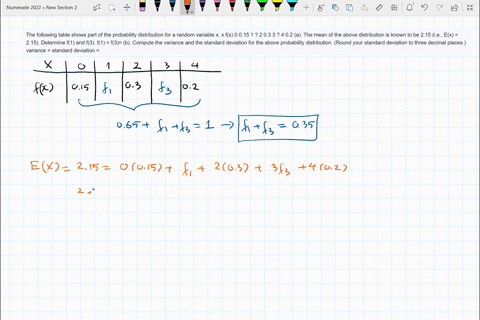 Numerade 2022 > New Section 2
The following table shows part of the probability distribution for a random variable x. x f(x) 0 0.15 1 ? 2 0.3 3 ? 4 0.2 (a). The mean of the above distribution is known to be 2.15 (i.e., E(x) =
2.15). Determine f(1) and f(3). f(1) = f(3)= (b). Compute the variance and the standard deviation for the above probability distribution. (Round your standard deviation to three decimal places.)
variance = standard deviation =
X 0 1 2 3 4
f(x) 0.15 f1 0.3 f3 0.2
0.65 + f1 + f3 = 1 → f1 + f3 = 0.35
E(X) = 2.15 = 0(0.15) + f1 + 2(0.3) + 3f3 + 4(0.2)
2.